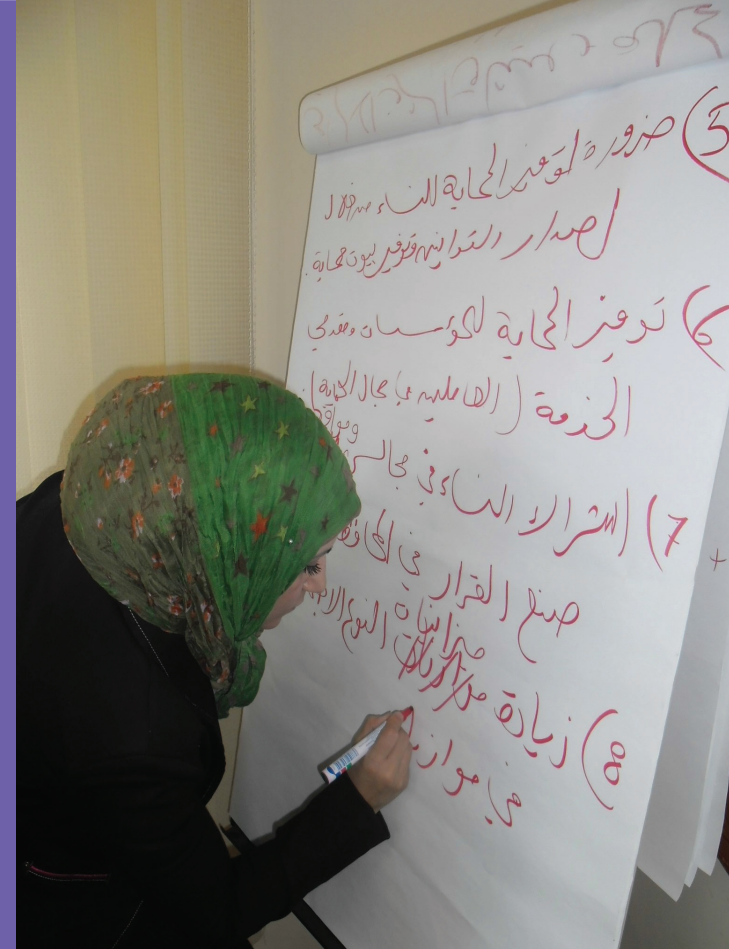 5) ضرورة توفير الحماية للنساء من خلال
إصدار القوانين وتوفير بيوت حماية.
6) توفير الحماية للمؤسسات ومقدمي
الخدمة (العاملين في مجال الحماية)
7) إشراك النساء في مجالس
صنع القرار في
8) زيادة ميزانية النوع
في موازنة